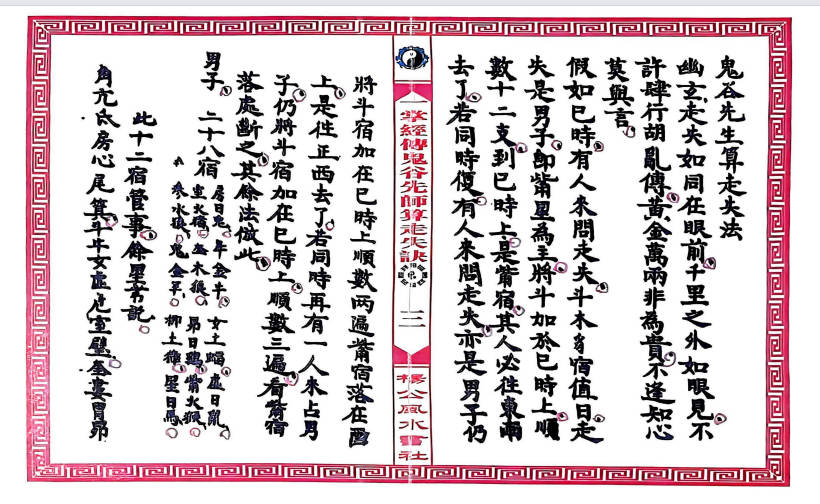 鬼谷先生算走失法
幽玄走失如同在眼前千里之外如眼見不
許肆行胡亂傳黃金萬兩非為貴不逢知心
莫與言
假如巳時有人來問走失斗木豸宿值日走
失是男子即觜星為主將斗加於巳時上順
數十二支到巳時上是觜宿其人必往東南
去了若同時復有人來問走失亦是男子仍
一掌經傳鬼谷先師算走失訣
三
楊公風水會社
將斗宿加在巳時上順數两遍觜宿落在酉
上是往正西去了若同時再有一人來占男
子仍將斗宿加在巳時上順數三遍看觜宿
落處斷之其餘法倣此
男子 二十八宿 房日兔 牛金牛 女土蝠 虛日鼠
室火猪 奎木狼 昴日鷄 觜火猴
参水猿 鬼金羊 柳土獐 星日馬
此十二宿管事餘星不說
角亢氐房心尾箕斗牛女虛危室壁奎婁胃昴